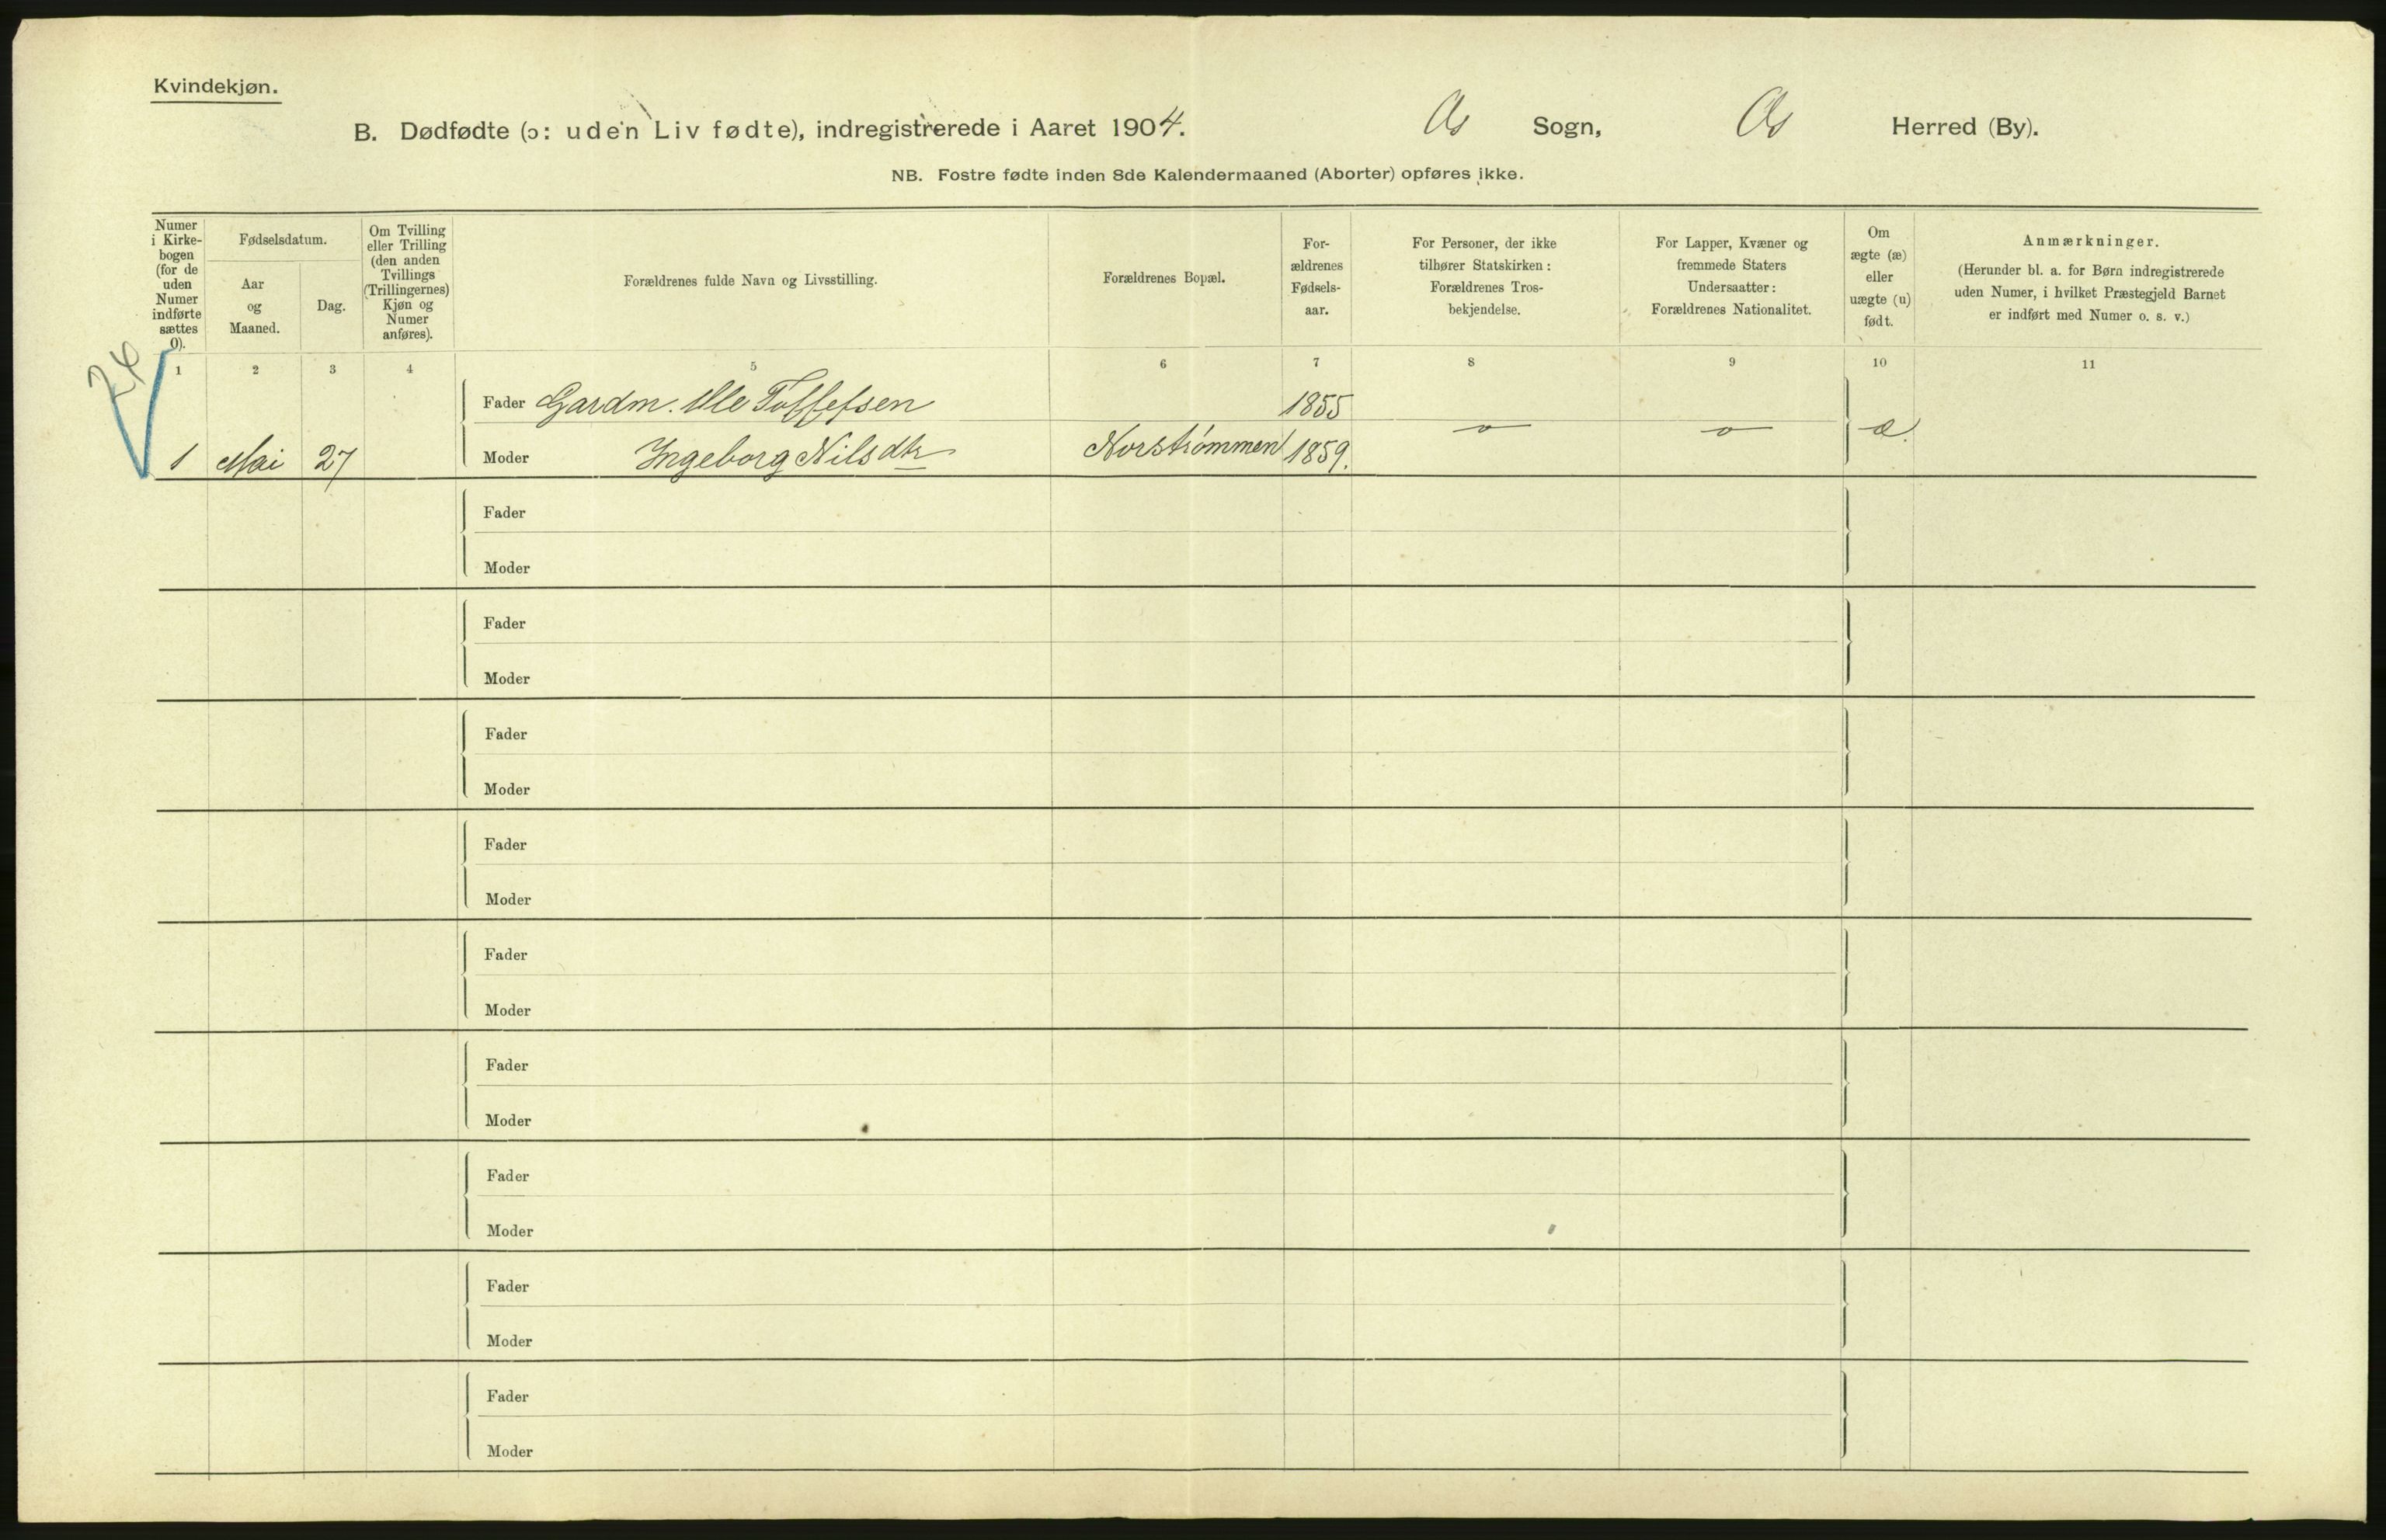 Kvindekjøn.
B. Dødfødte (ɔ: uden Liv fødte), indregistrerede i Aaret 1904. Os Sogn, Os Herred (By).
NB. Fostre fødte inden 8de Kalendermaaned (Aborter) opføres ikke.
Numer i Kirke-bogen (for de uden Numer indførte sættes 0).
Fødselsdatum.
Aar og Maaned.
Dag.
Om Tvilling eller Trilling (den anden Tvillings (Trillingernes) Kjøn og Numer anføres).
Forældrenes fulde Navn og Livsstilling.
Forældrenes Bopæl.
For-ældrenes Fødsels-aar.
For Personer, der ikke tilhører Statskirken: Forældrenes Tros-bekjendelse.
For Lapper, Kvæner og fremmede Staters Undersaatter: Forældrenes Nationalitet.
Om ægte (æ) eller uægte (u) født.
Anmærkninger.
(Herunder bl. a. for Børn indregistrerede uden Numer, i hvilket Præstegjeld Barnet er indført med Numer o. s. v.)
1 2 3 4 5 6 7 8 9 10 11
Fader Gardm. Ole 1855
1 Mai 27 Moder Ingeborg Nilsdtr Norstrømmen 1859. æ.
Fader
Moder
Fader
Moder
Fader
Moder
Fader
Moder
Fader
Moder
Fader
Moder
Fader
Moder
Fader
Moder
Fader
Moder